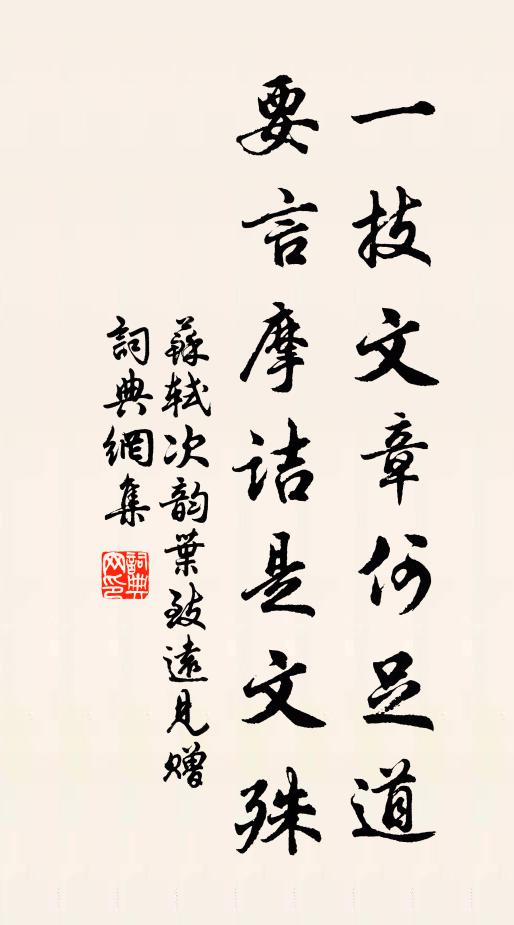 一技文章何足道
要言摩诘是文殊
蘇軾次韵葉致遠見赠
詞典網集
詞典网印